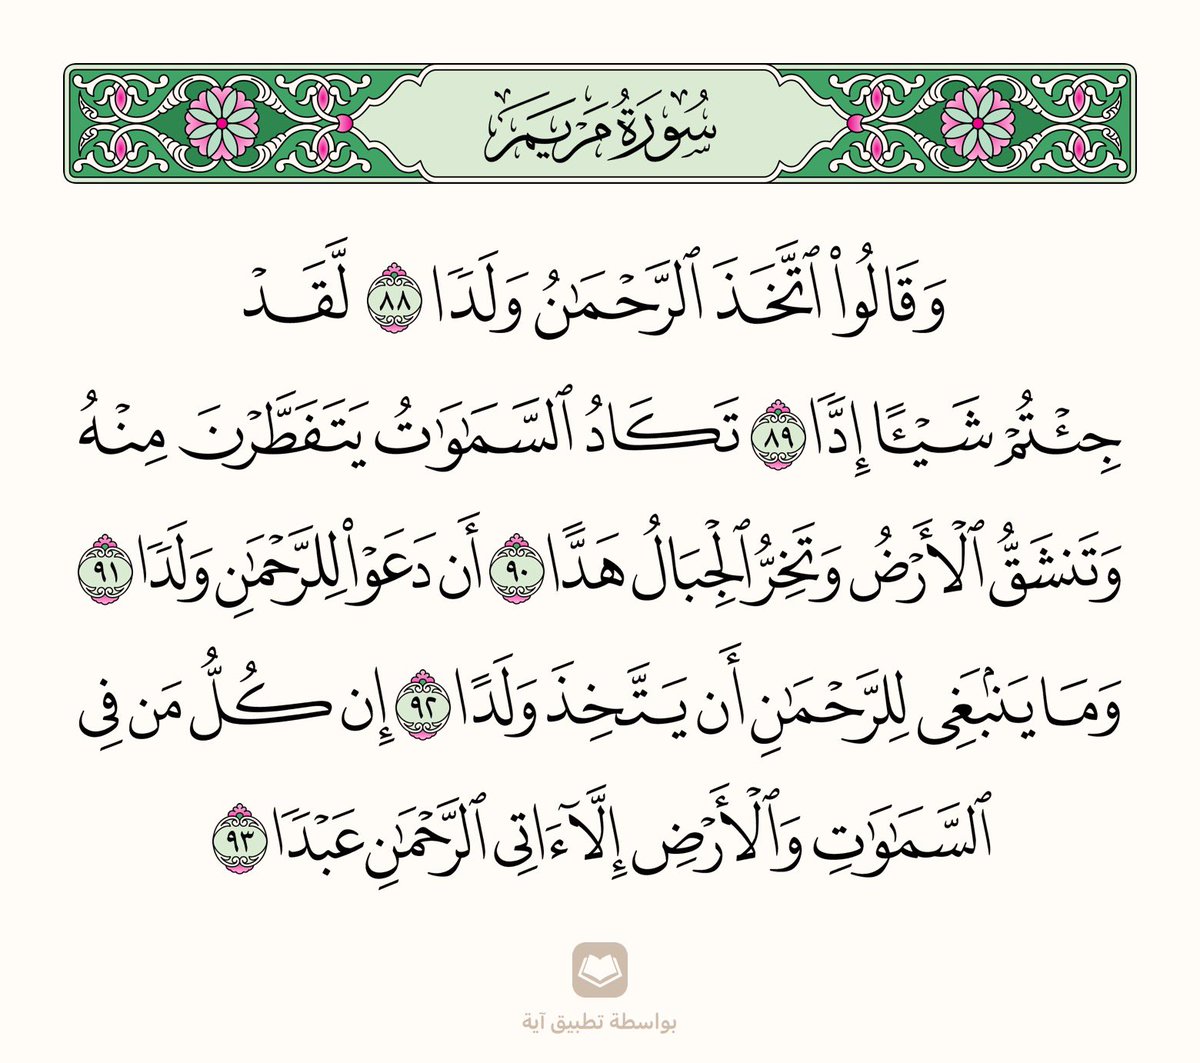 سُورَةُ مَرۡيَمَ
وَقَالُواْ ٱتَّخَذَ ٱلرَّحۡمَٰنُ وَلَدٗا ٨٨ لَّقَدۡ
جِئۡتُمۡ شَيۡـًٔا إِدّٗا ٨٩ تَكَادُ ٱلسَّمَٰوَٰتُ يَتَفَطَّرۡنَ مِنۡهُ
وَتَنشَقُّ ٱلۡأَرۡضُ وَتَخِرُّ ٱلۡجِبَالُ هَدًّا ٩٠ أَن دَعَوۡاْ لِلرَّحۡمَٰنِ وَلَدٗا ٩١
وَمَا يَنۢبَغِي لِلرَّحۡمَٰنِ أَن يَتَّخِذَ وَلَدًا ٩٢ إِن كُلُّ مَن فِي
ٱلسَّمَٰوَٰتِ وَٱلۡأَرۡضِ إِلَّآ ءَاتِي ٱلرَّحۡمَٰنِ عَبۡدٗا ٩٣
بواسطة تطبيق آية